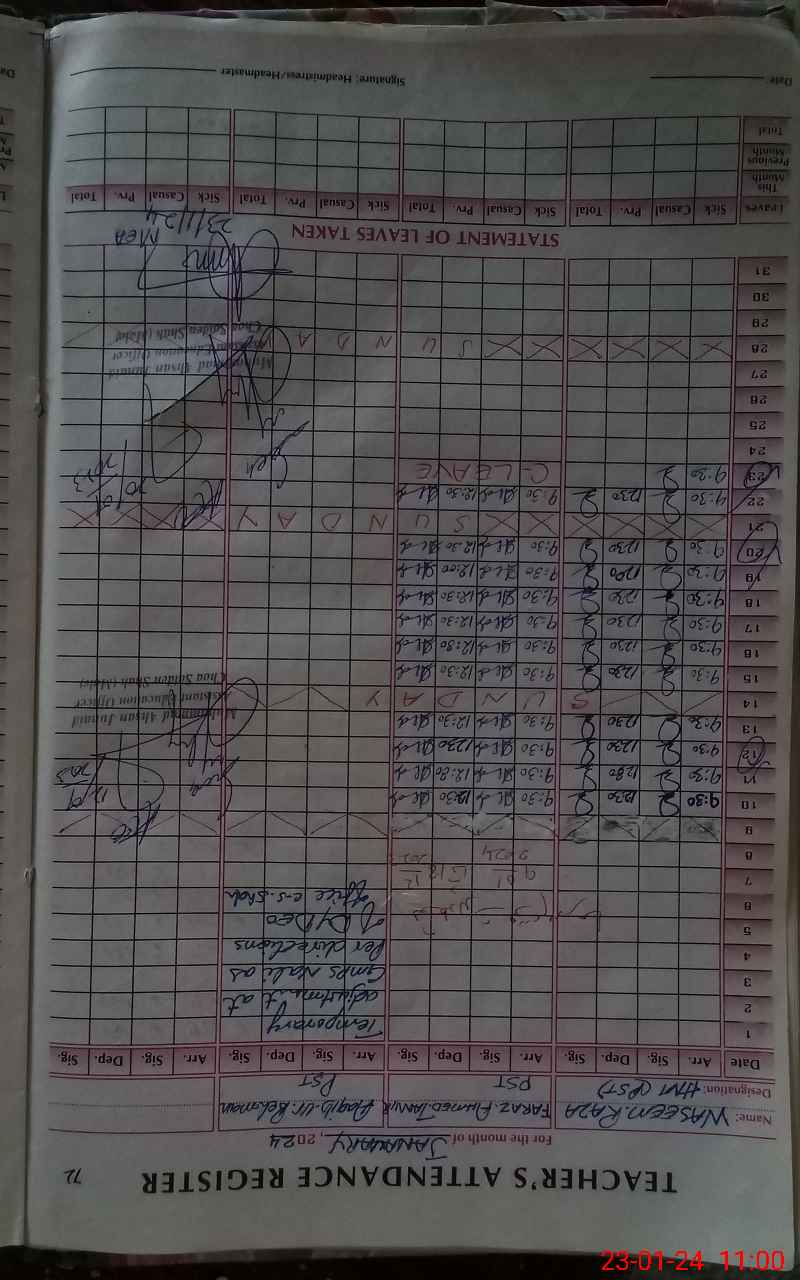 72
TEACHER'S ATTENDANCE REGISTER
For the month of JANUARY, 2024
Name: WASEEM RAZA FARAZ AHMED Aaqib-Ur-Rehman
Designation: HM (PST) PST PST
Date Arr. Sig. Dep. Sig. Arr. Sig. Dep. Sig. Arr. Sig. Dep. Sig. Arr. Sig. Dep. Sig.
1 Temporary
2 adjustment at
3 GMPS Wali as
4 Per directions
5 of Dy DEO
6 office c.s. shah
7
8 2024
9
10 9:30 1230 9:30 12:30
11 9:30 1230 9:30 12:30
12 9:30 1230 9:30 1230
13 9:30 1230 9:30 12:30
14 S U N D A Y
Muhammad Ahsan Junaid
Assistant Education Officer
Choa Saiden Shah (Male)
15 9:30 1230 9:30 12:30
16 9:30 1230 9:30 12:30
17 9:30 1230 9:30 12:30
18 9:30 1230 9:30 12:30
19 9:30 1200 9:30 12:00
20 9:30 1230 9:30 12:30
21 S U N D A Y
22 9:30 1230 9:30 12:30
23 9:30 C-LEAVE
24
25
26
27
28 S U N D A Y
Muhammad Ahsan Junaid
Assistant Education Officer
Choa Saiden Shah (Male)
29
30
31
MEA
23/1/24
STATEMENT OF LEAVES TAKEN
Leaves Sick Casual Prv. Total Sick Casual Prv. Total Sick Casual Prv. Total Sick Casual Prv. Total
This Month
Previous Month
Total
Date Signature: Headmistress/Headmaster
23-01-24 11:00